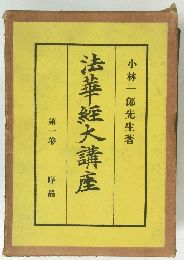 小林一郎先生著
法華經大講座
第一卷　序品